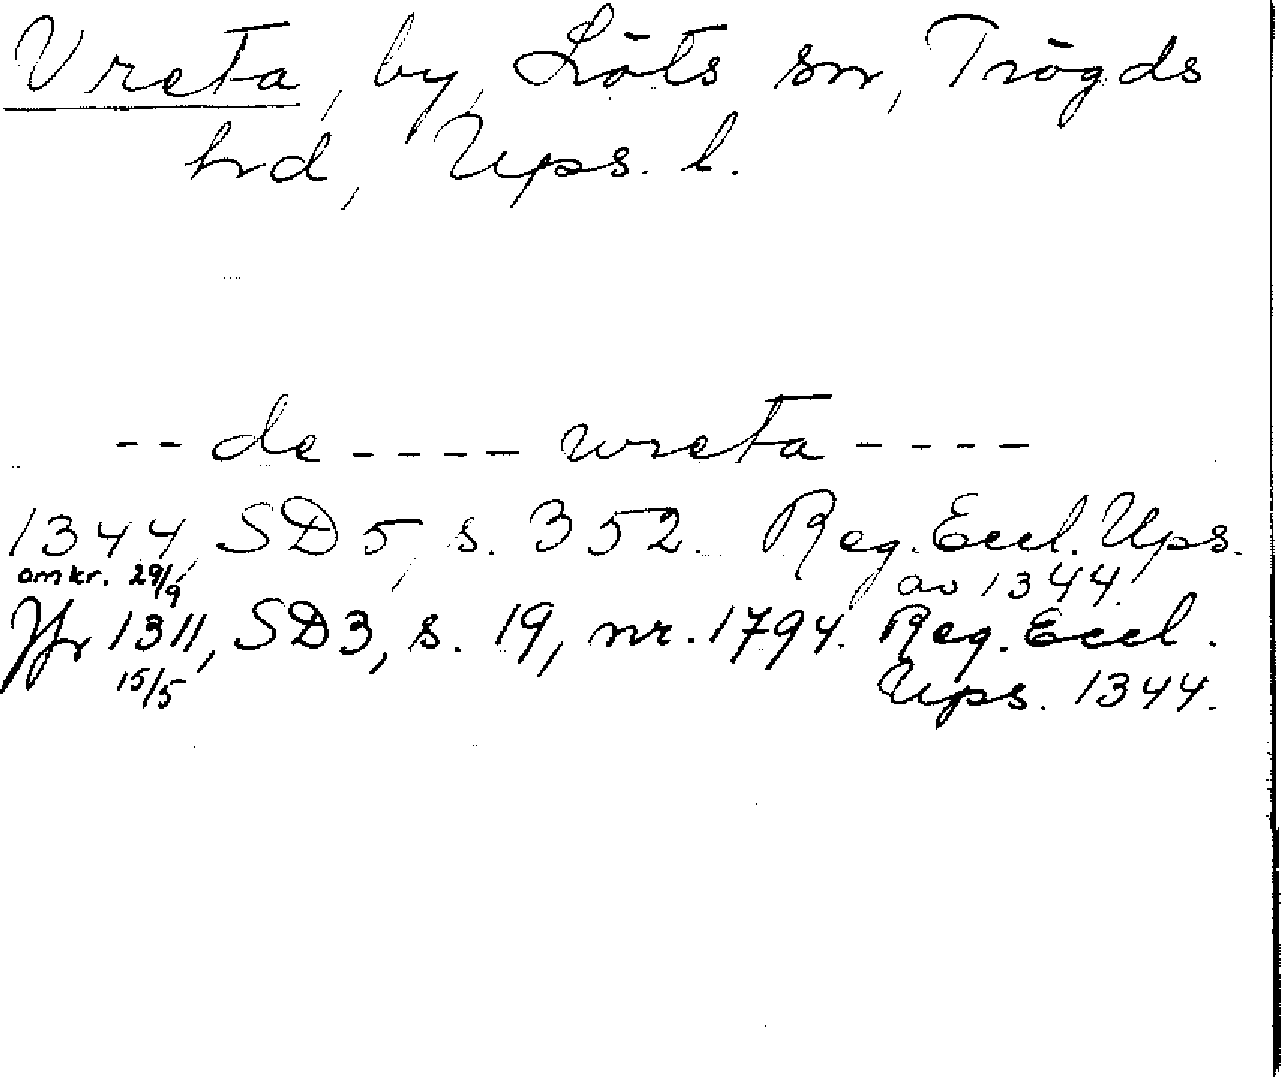 Vreta, by, Löts sn, Trögds
hrd, Ups. l.
-- de ---- wreta ----
1344, SD 5, s. 352. Reg. Eccl. Ups.
omkr. 29/9 av 1344.
Jfr 1311, SD 3, s. 19, nr. 1794. Reg. Eccl.
15/5 Ups. 1344.